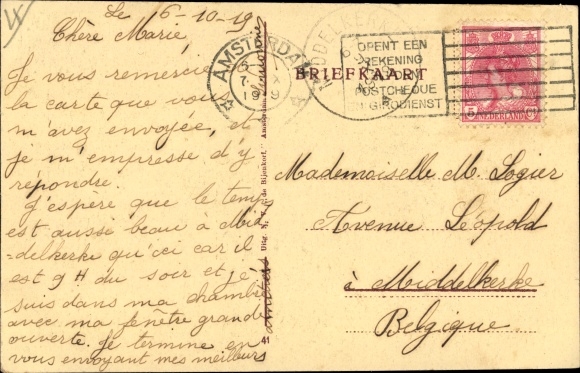 Le 6-10-19
Chère Marie,
Je vous remercie
la carte que vous
m'avez envoyée, et
je m'empresse d'y
répondre.
J'espère que le temps
est aussi beau à Mid
-delkerke qu'ici car il
est 9 H du soir et je
suis dans ma chambre
avec ma fenêtre grande
ouverte. Je termine en
vous envoyant mes meilleurs
amitiés
41
BRIEFKAART
AMSTERDAM
MIDDELKERKE
OPENT EEN
REKENING
POSTCHEQUE
EN GIRODIENST
5 Ct
NEDERLAND
Mademoiselle M. Logier
Avenue Léopold
à Middelkerke
Belgique